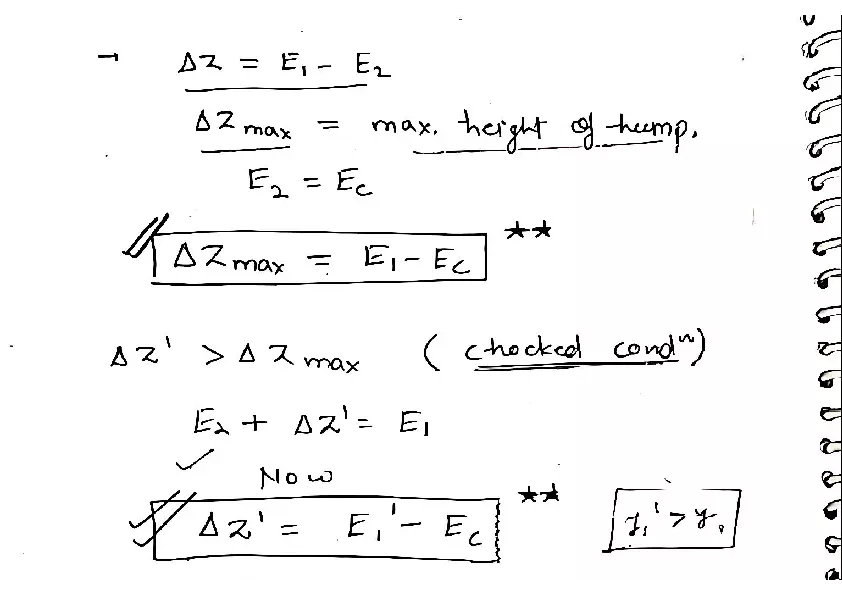 → ΔZ = E₁ - E₂
ΔZmax = max. height of hump.
E₂ = Ec
ΔZmax = E₁ - Ec ★★
ΔZ' > ΔZmax ( chocked condⁿ)
E₂ + ΔZ' = E₁
Now
ΔZ' = E₁' - Ec ★★
y₁' > y₁